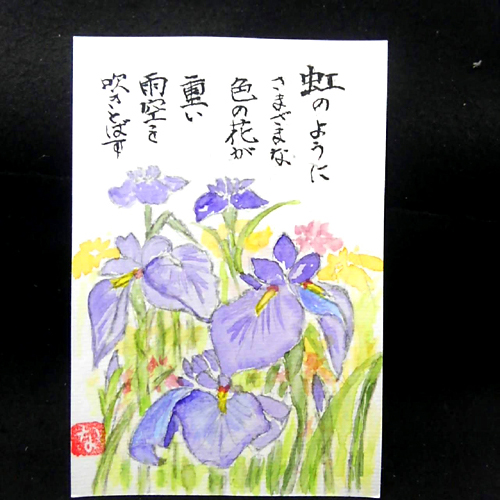 虹のように
さまざまな
色の花が
重い
雨空を
吹きとばす
な